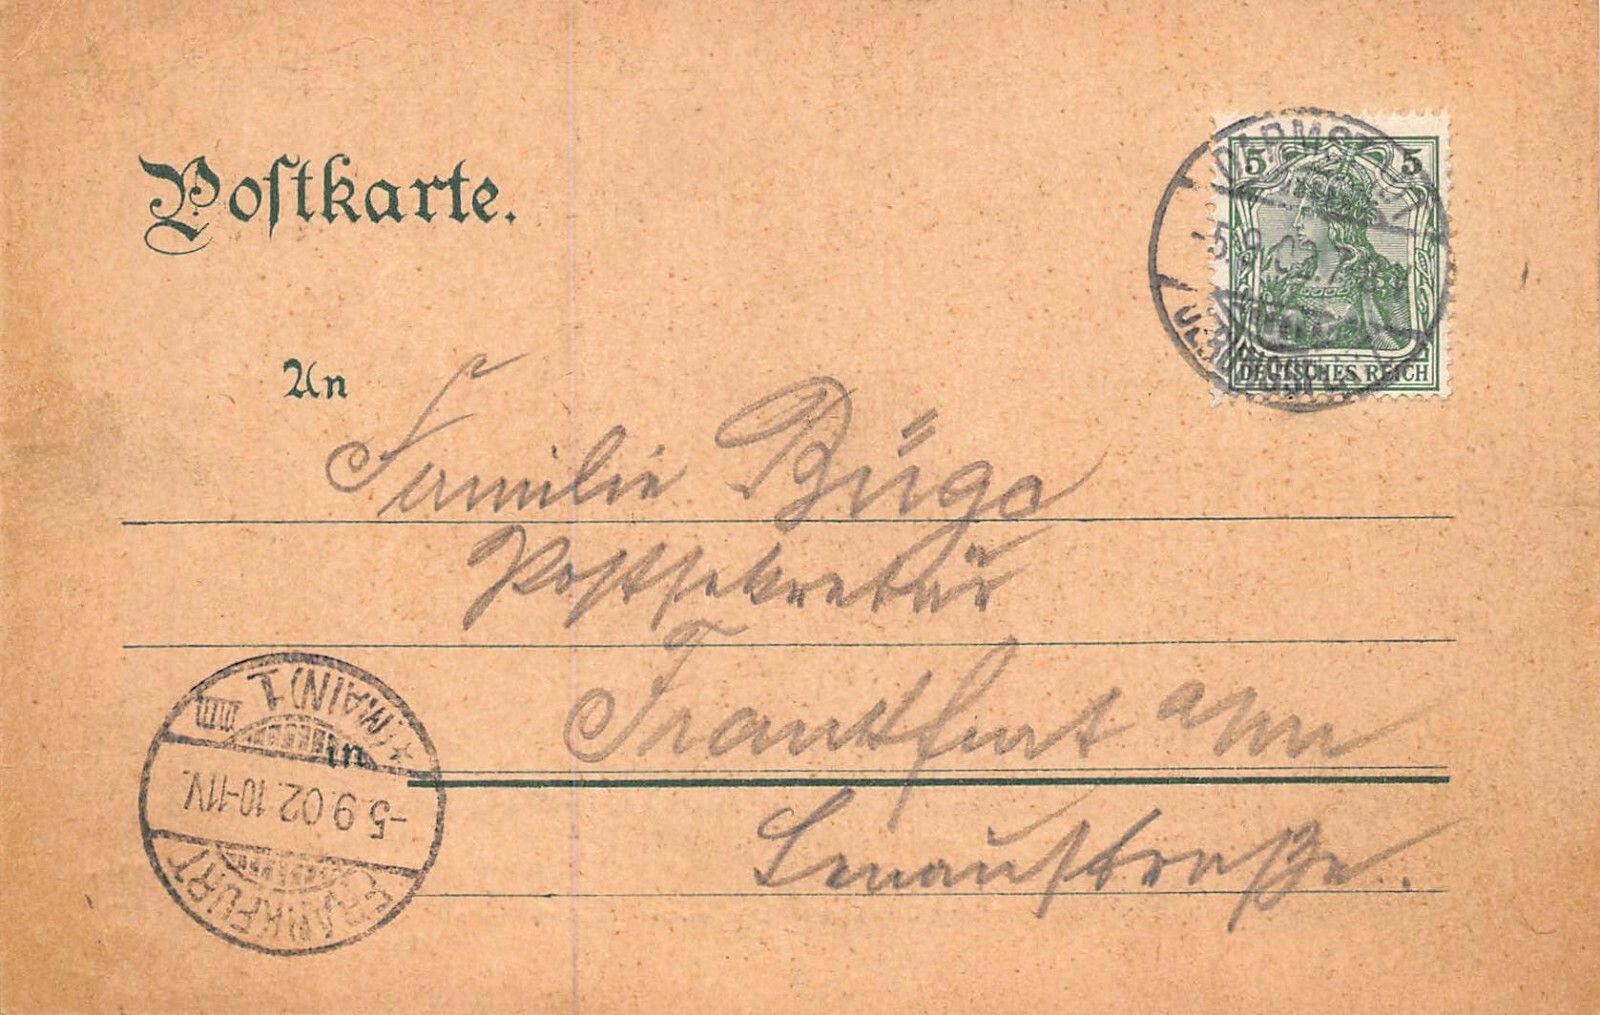 Postkarte.
5 5
DEUTSCHES REICH
5.9.02.7-8V
An
Familie Bügo
Postsekretär
Frankfurt a/m
in
Lenaustraße.
FRANKFURT
-5.9.02.10-11V.
*(MAIN)1